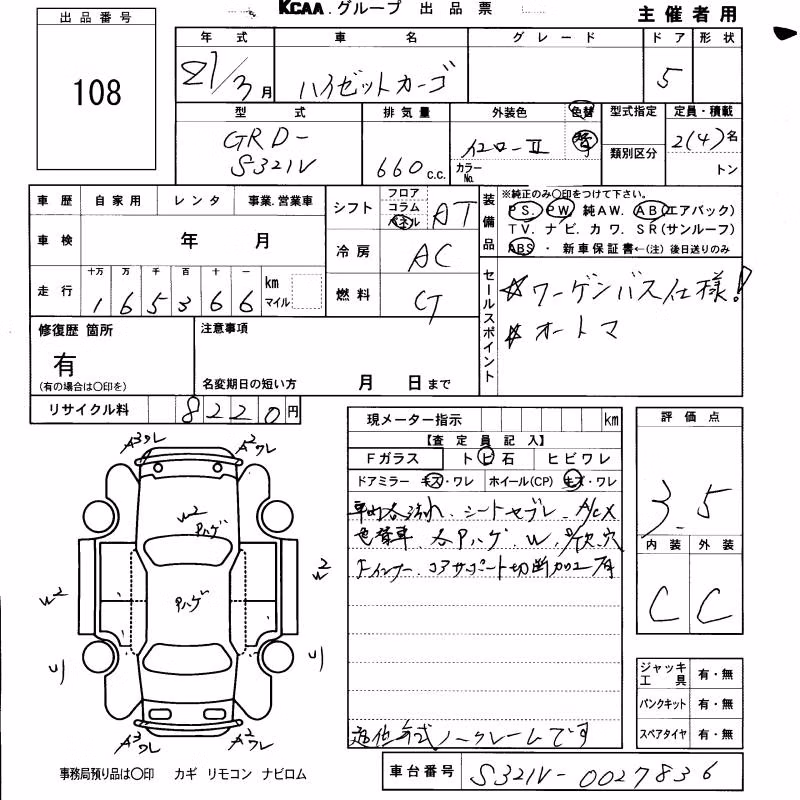 KCAA.グループ 出品票
主催者用
出品番号
108
年式 車名 グレード ドア 形状
21/3月 ハイゼットカーゴ 5
型式 排気量 外装色 色替 型式指定 定員・積載
GBD-
S321V
660c.c.
イエローII
カラーNo.
替
類別区分
2(4)名
トン
車歴 自家用 レンタ 事業.営業車
車検 年 月
走行 十万 万 千 百 十 一
1 6 5 3 6 6 km マイル
シフト フロア コラム パネル AT
冷房 AC
燃料
装備品
※純正のみ〇印をつけて下さい。
PS. PW. 純AW. AB(エアバック)
TV. ナビ. カワ. SR(サンルーフ)
ABS ・ 新車保証書←(注) 後日送りのみ
セールスポイント
☆ワーゲンバス仕様!
☆オートマ
修復歴 箇所
有
(有の場合は〇印を)
注意事項
名変期日の短い方 月 日まで
リサイクル料 8220円
現メーター指示 km
【査定員記入】
Fガラス トビ石 ヒビワレ
ドアミラー キズ・ワレ ホイール(CP) キズ・ワレ
車内各汚れ、シートヤブレ、A/C X
色替車、各Pハゲ、W、穴
Fインナー、コアサポート切断加工有
ノークレームです
評価点
3.5
内装 外装
C C
ジャッキ工具 有・無
パンクキット 有・無
スペアタイヤ 有・無
A3ワレ A2ワレ
W2 Pハゲ
W2 Pハゲ W2
A3ワレ A2ワレ
事務局預り品は〇印 カギ リモコン ナビロム
車台番号 S321V-0027836